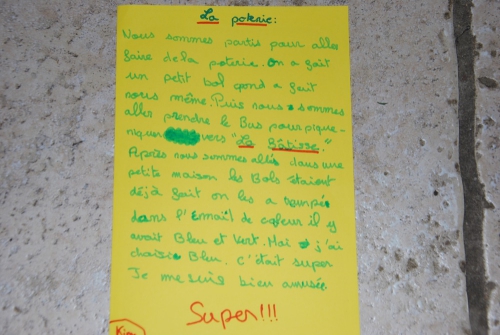 La poterie:
Nous sommes partis pour aller
faire de la poterie. On a fait
un petit bol qond a fait
nous même. Puis nous sommes
aller prendre le Bus pour pique-
niquer vers "La Bâtisse".
Après nous sommes allés dans une
petite maison les Bols étaient
déjà fait on les a trempés
dans l'Email de couleur il y
avait Bleu et Vert. Moi j'ai
choisie Bleu. C'était super
Je me suis bien amusée
Super!!!